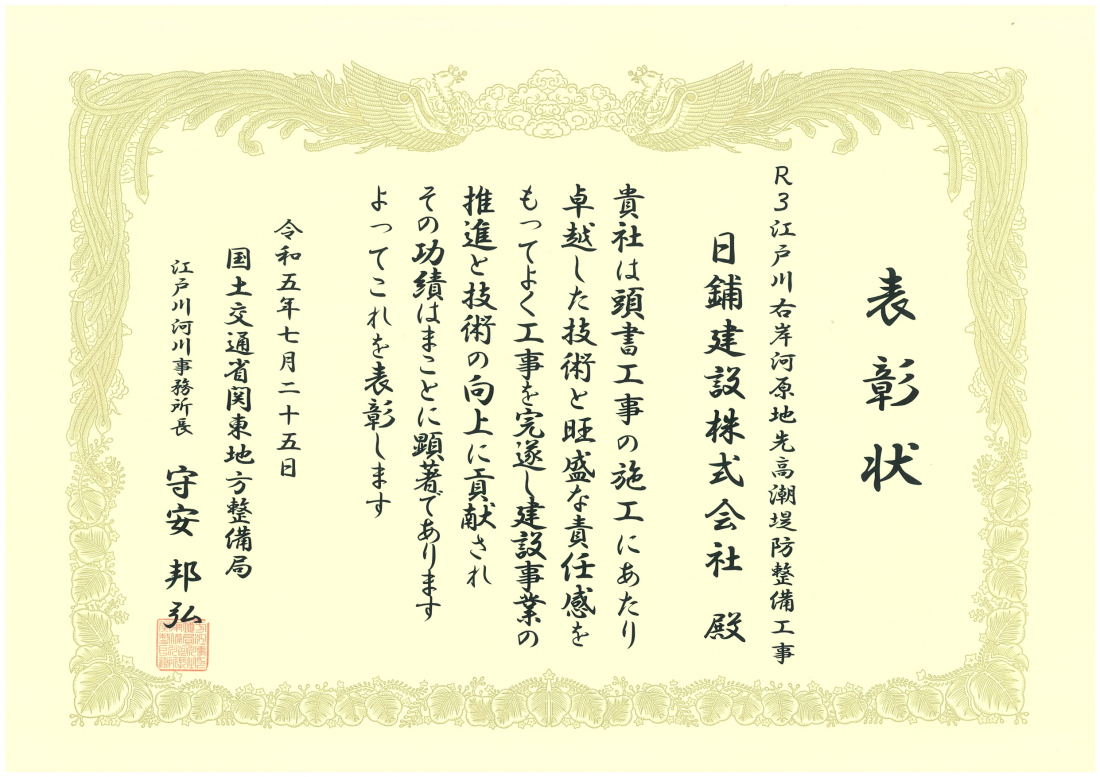 表彰状
R3江戸川右岸河原地先高潮堤防整備工事
日鋪建設株式会社 殿
貴社は頭書工事の施工にあたり
卓越した技術と旺盛な責任感を
もってよく工事を完遂し建設事業の
推進と技術の向上に貢献され
その功績はまことに顕著であります
よってこれを表彰します
令和五年七月二十五日
国土交通省関東地方整備局
江戸川河川事務所長 守安 邦弘